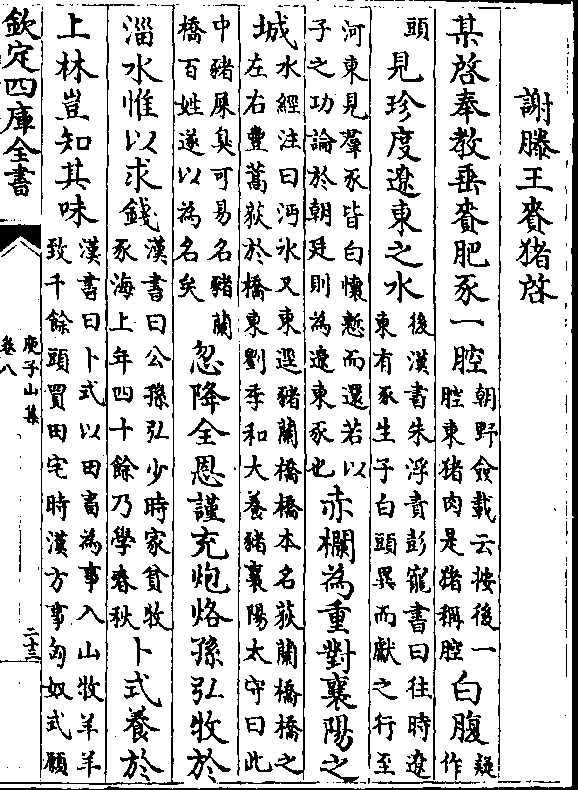 謝滕王賚猪啓
某啓奉教垂賚肥豕一腔
朝野僉載云按後一
腔東猪肉是猪稱腔
白腹
疑
作
頭
見珍度遼東之水
後漢書朱浮責彭寵書曰往時遼
東有豕生子白頭異而獻之行至
河東見羣豕皆白懷慙而還若以
子之功論於朝廷則為遼東豕也
赤欄為重對襄陽之
城
水經注曰沔水又東逕豬蘭橋橋本名荻蘭橋橋之
左右豐蒿荻於橋東劉季和大養豬襄陽太守曰此
中豬屎臭可易名豬蘭
橋百姓遂以為名矣
忽降全恩謹充炮烙孫弘牧於
淄水惟以求錢
漢書曰公孫弘少時家貧牧
豕海上年四十餘乃學春秋
卜式養於
上林豈知其味
漢書曰卜式以田畜為事入山牧羊羊
致千餘頭買田宅時漢方事匈奴式願
欽定四庫全書
庾子山集
卷八
二十三